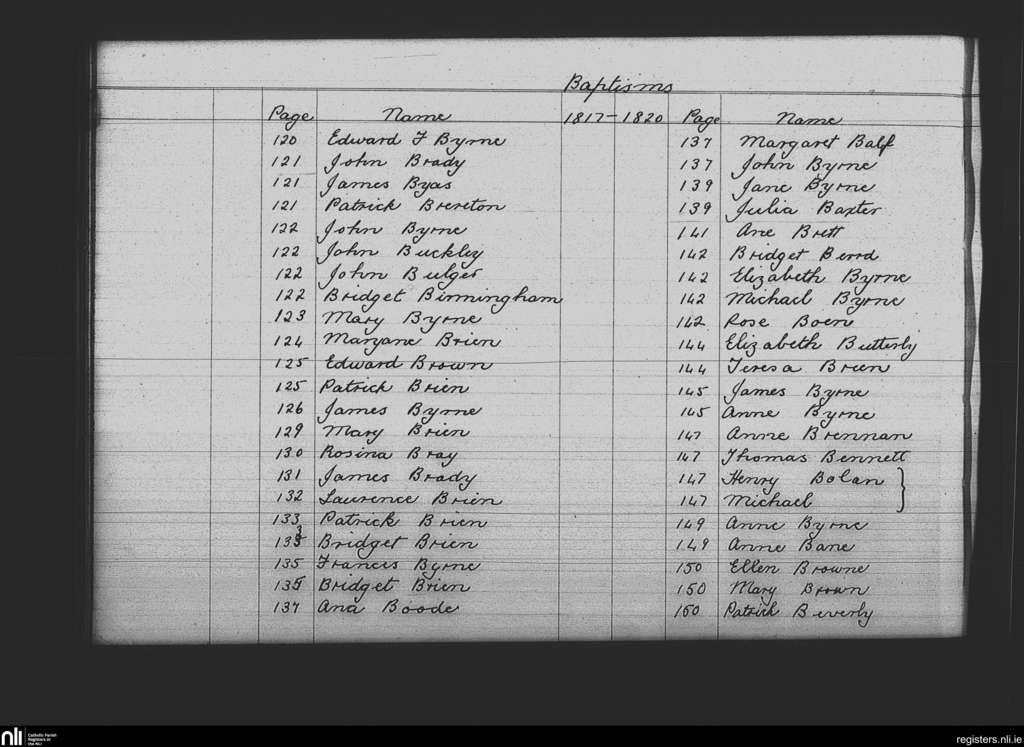 Baptisms
Page Name 1817-1820 Page Name
120 Edward F Byrne
121 John Brady
121 James Byas
121 Patrick Brereton
122 John Byrne
122 John Buckley
122 John Bulger
122 Bridget Birmingham
123 Mary Byrne
124 Maryane Brien
125 Edward Brown
125 Patrick Brien
126 James Byrne
129 Mary Brien
130 Rosina Bray
131 James Brady
132 Laurence Brien
133 Patrick Brien
133 Bridget Brien
135 Francis Byrne
135 Bridget Brien
137 Ana Boode
137 Margaret Balf
137 John Byrne
139 Jane Byrne
139 Julia Baxter
141 Ane Brett
142 Bridget Berrd
142 Elizabeth Byrne
142 Michael Byrne
142 Rose Boen
144 Elizabeth Butterly
144 Teresa Brien
145 James Byrne
145 Anne Byrne
147 Anne Brennan
147 Thomas Bennett
147 Henry Bolan
147 Michael
149 Anne Byrne
149 Anne Bane
150 Ellen Browne
150 Mary Brown
150 Patrick Beverly
nli Catholic Parish
Registers at
the NLI
registers.nli.ie